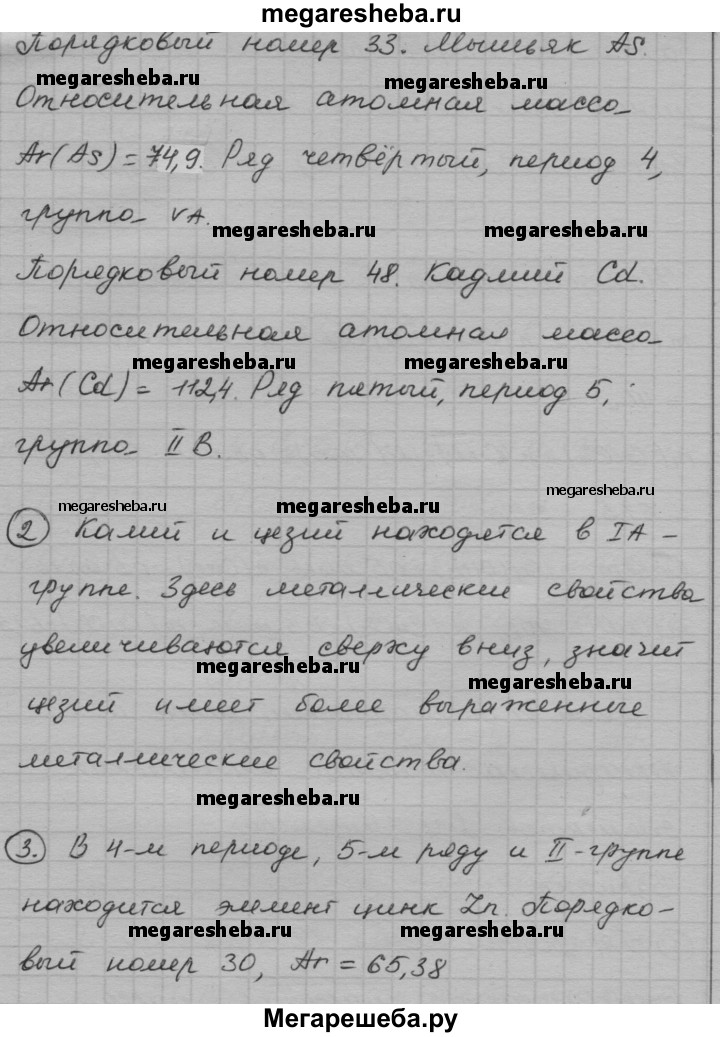 megaresheba.ru
Порядковый номер 33. Мышьяк As.
megaresheba.ru megaresheba.ru
Относительная атомная масса
Ar(As) = 74,9. Ряд четвёртый, период 4,
группа VA.
megaresheba.ru megaresheba.ru
Порядковый номер 48. Кадмий Cd.
Относительная атомная масса
megaresheba.ru megaresheba.ru
Ar(Cd) = 112,4. Ряд пятый, период 5,
группа II B.
megaresheba.ru megaresheba.ru megaresheba.ru
2 Калий и цезий находятся в IA-
группе. Здесь металлические свойства
увеличиваются сверху вниз, значит
megaresheba.ru megaresheba.ru
цезий имеет более выраженные
металлические свойства.
megaresheba.ru
3. В 4-м периоде, 5-м ряду и II-группе
находится элемент цинк Zn. Порядко-
megaresheba.ru megaresheba.ru
вый номер 30, Ar = 65,38
Мегарешеба.ру